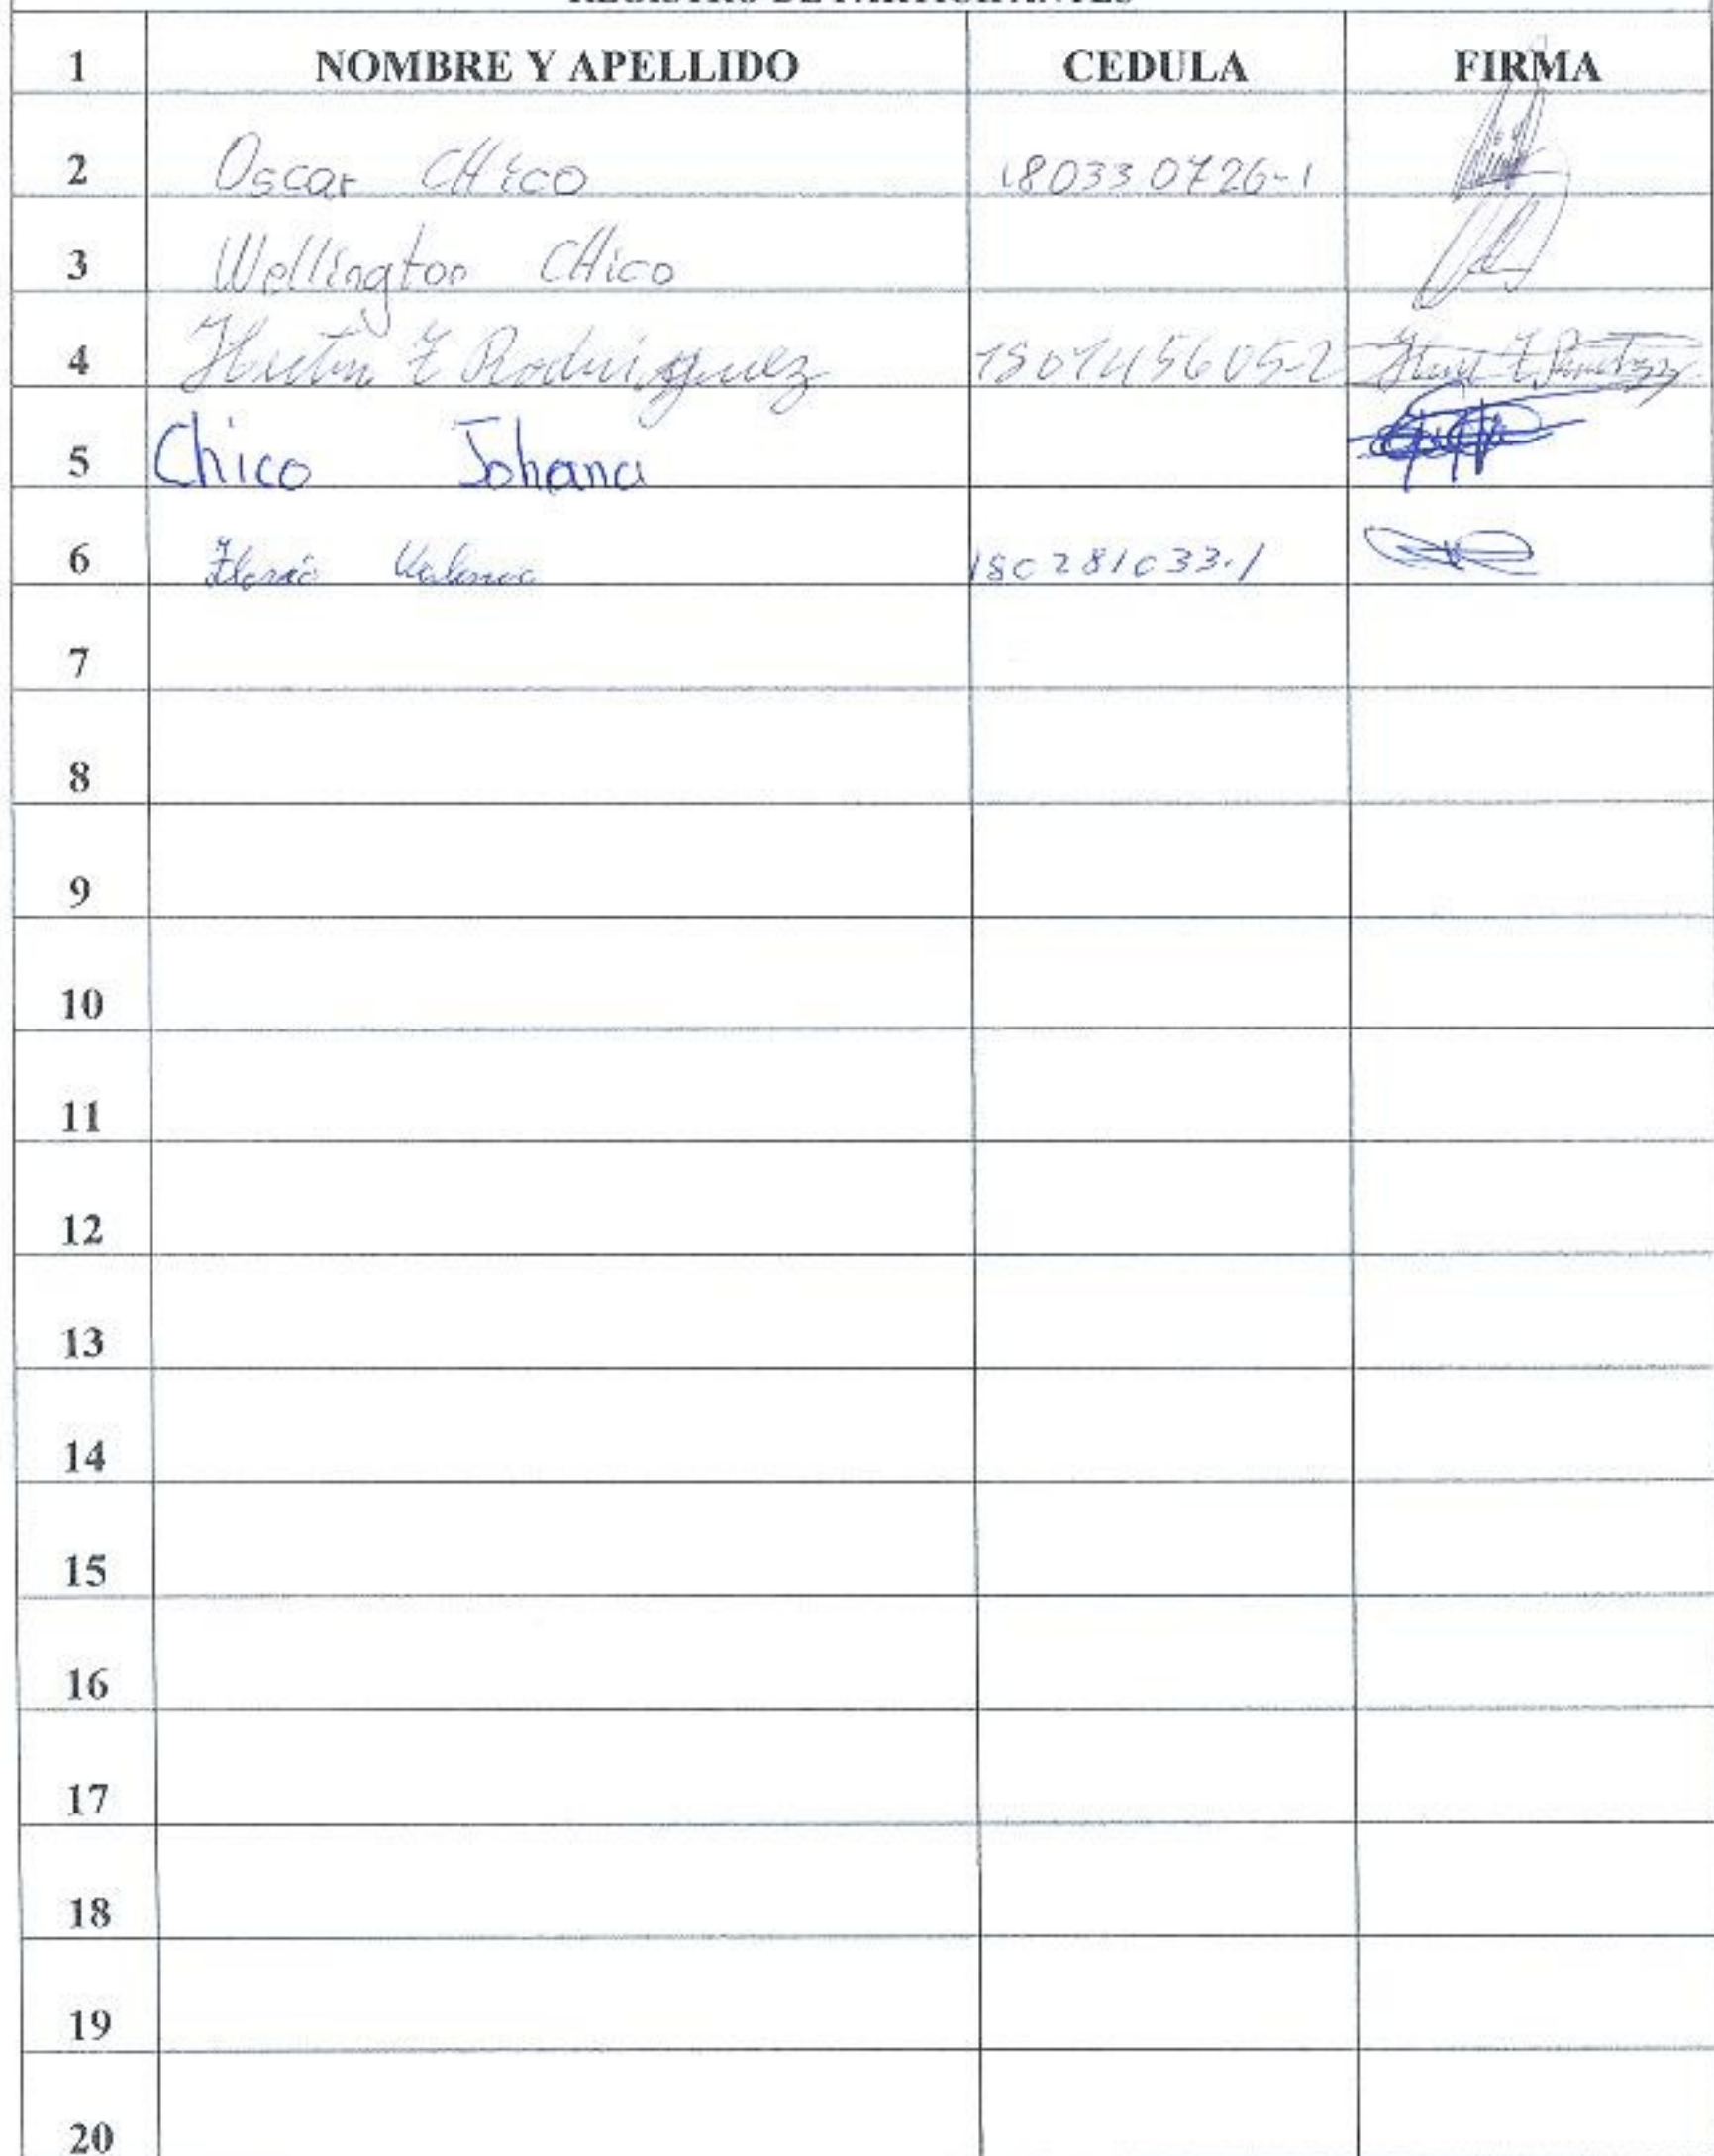 REGISTRO DE PARTICIPANTES
1 NOMBRE Y APELLIDO CEDULA FIRMA
2 Oscar CHico 180330726-1
3 Wellington CHico
4 Rodriguez 180145605-2
5 Chico Johana
6 180281033-1
7
8
9
10
11
12
13
14
15
16
17
18
19
20